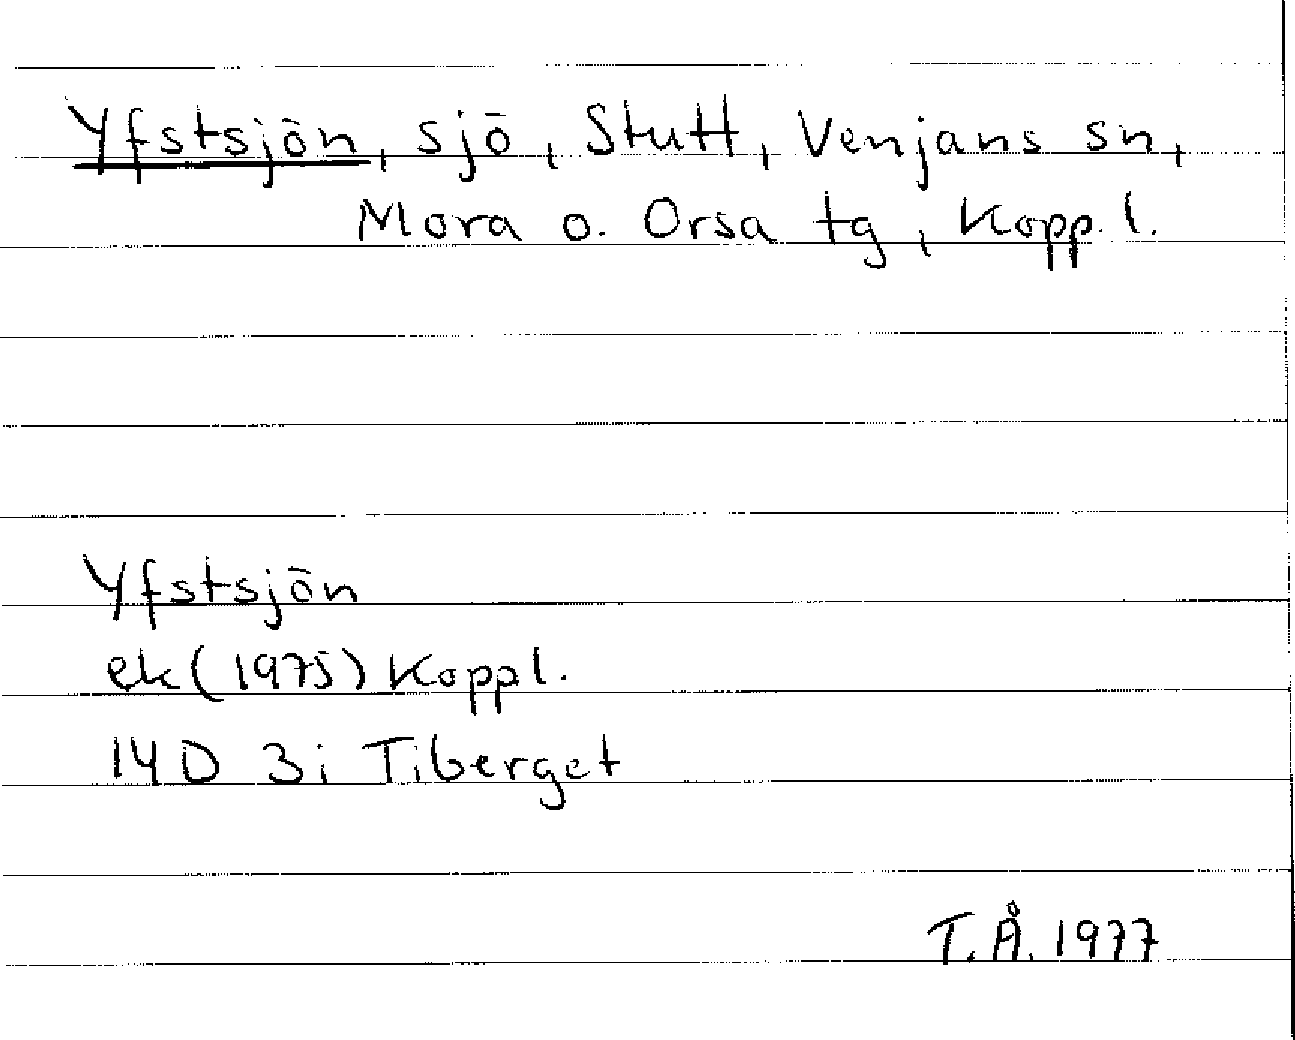 Yfstsjön, sjö, Stutt, Venjans sn,
Mora o. Orsa tg, Kopp. l.
Yfstsjön
ek (1975) Koppl.
14D 3i Tiberget
T. Å. 1977